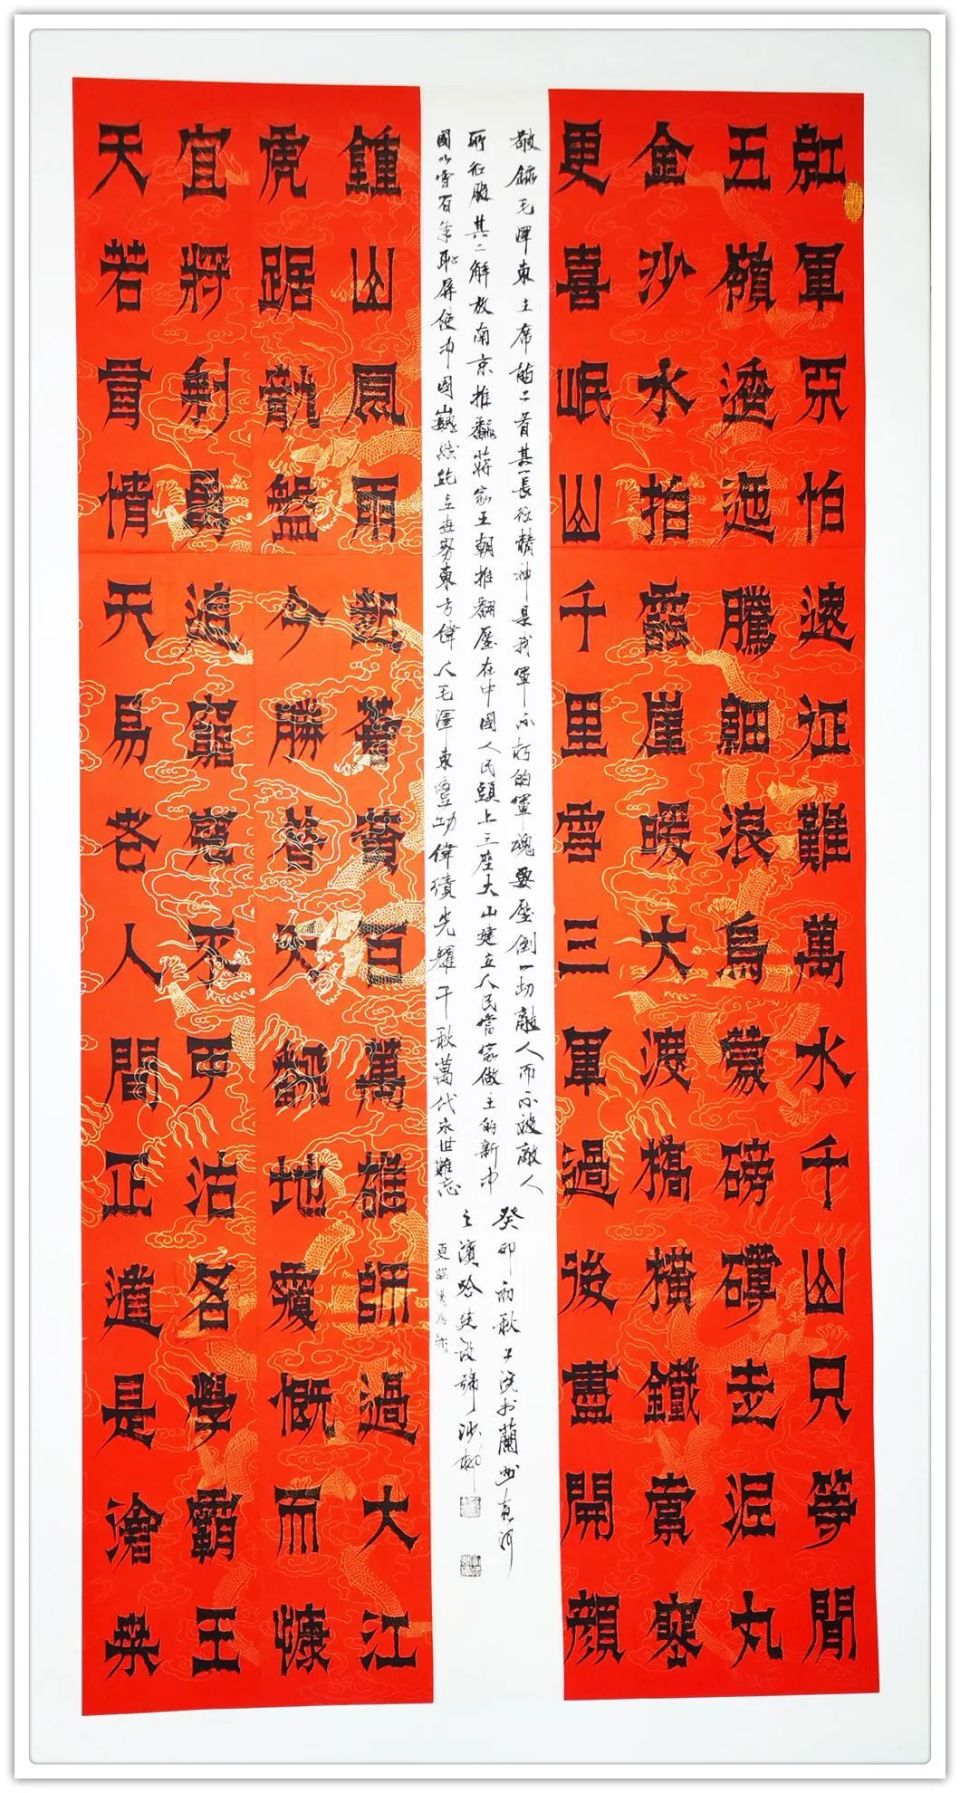 紅軍不怕遠征難萬水千山只等閒
五嶺逶迤騰細浪烏蒙磅礴走泥丸
金沙水拍雲崖暖大渡橋橫鐵索寒
更喜岷山千里雪三軍過後盡開顏
敬錄毛澤東主席詩二首其一長征精神是我軍不朽的軍魂要壓倒一切敵人而不被敵人
所征服其二解放南京推翻蔣家王朝推翻壓在中國人民頭上三座大山建立人民當家做主的新中
國以雪百年恥辱使中國巍然屹立世界東方偉人毛澤東豐功偉績光耀千秋萬代永世難忘
癸卯初秋上浣於蘭州黃河
之濱哈建設號沙柳
鍾山風雨起蒼黃百萬雄師過大江
虎踞龍盤今勝昔天翻地覆慨而慷
宜將剩勇追窮寇不可沽名學霸王
天若有情天易老人間正道是滄桑